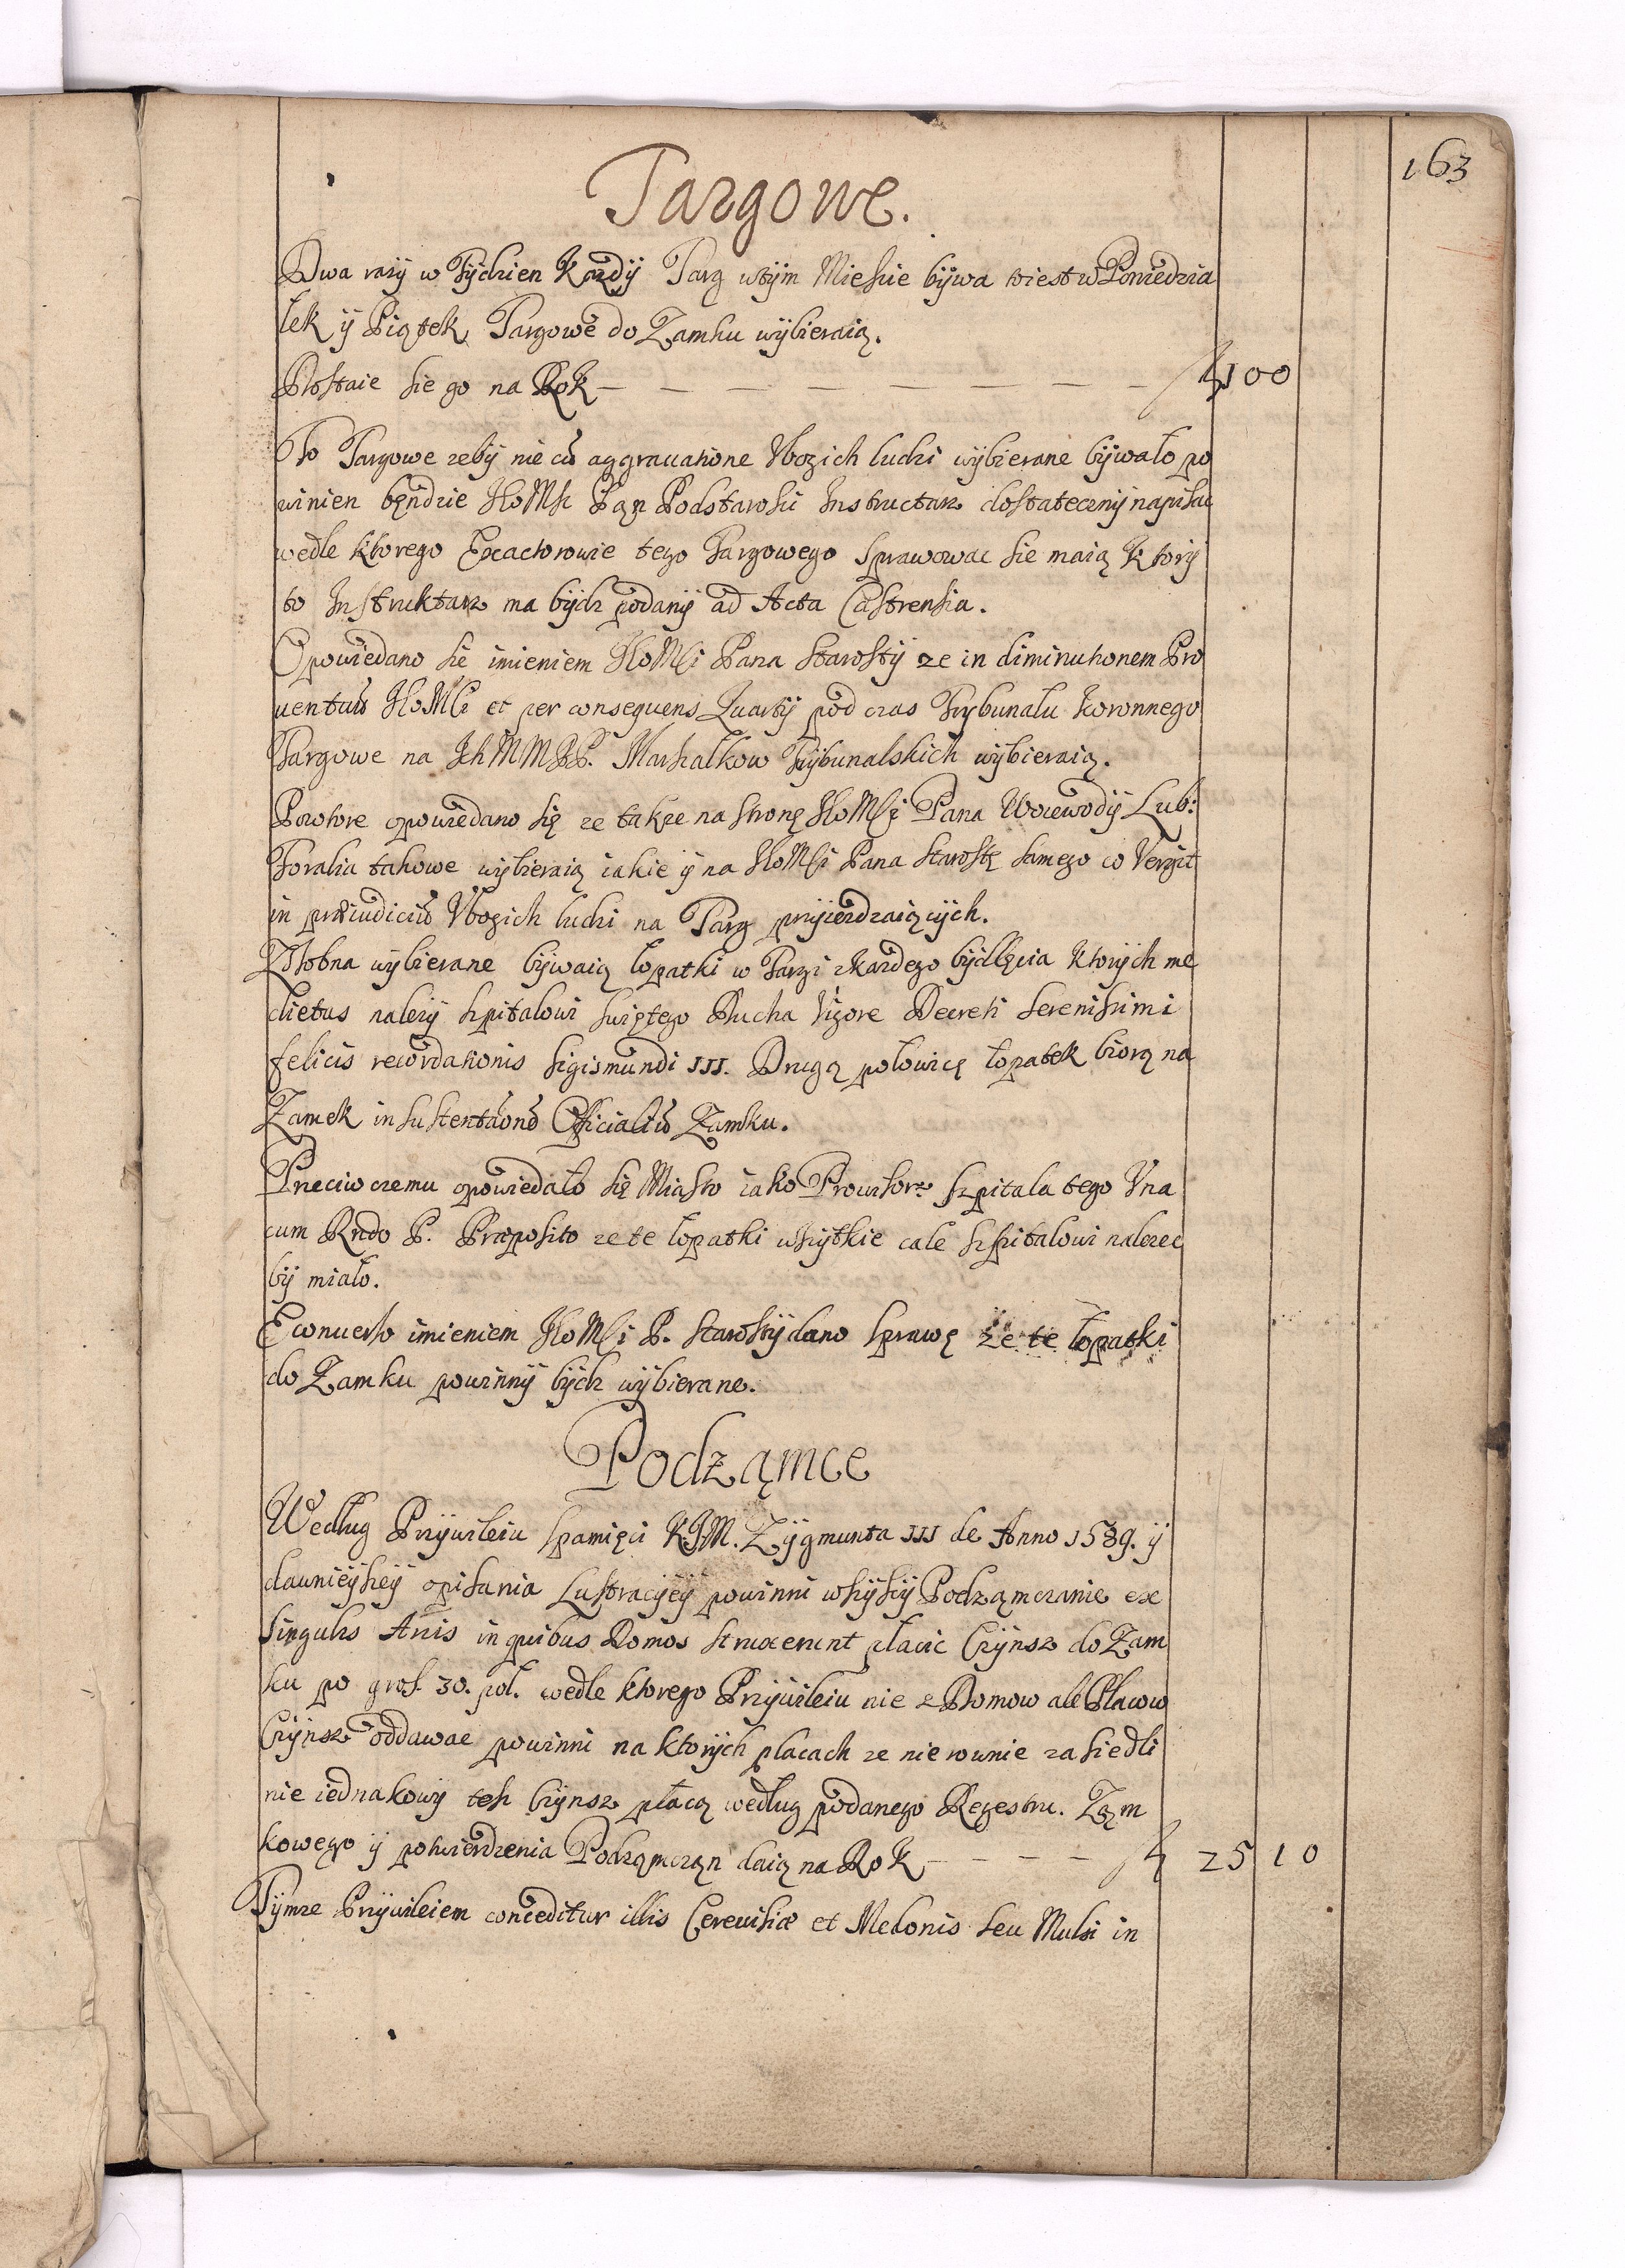 163
Targowe.
Dwa razÿ w Tÿdzien Kozdÿ Targ wtÿm Miescie bÿwa toiest w Poniedzia
łek ÿ Piątek Targowe do Zamku wÿbieraią.
Dostaie sie go na Rok — — — — — — — — f 100
To Targowe zebÿ nie cū aggrauatione Vbozich ludzi wÿbierane bÿwało po
winien będzie JKoMsc Pan Podstarosci Instructarz dostatecznÿ napisac
wedle ktorego Exactorowie tego Targowego sprawowac sie maią Ktorÿ
to Instruktarz ma bÿdz podanÿ ad Acta Castrensia.
Opowiedano sie imieniem JKoMsci Pana Starostÿ ze in diminutionem Pro
uentuū JKoMsci et per consequens Quartÿ pod czas Trÿbunalu Koronnego
Targowe na IchMMPP. Marszałkow Trÿbunalskich wÿbieraią.
Powtore opowiedano się ze takze na stronę JKoMsci Pana Woiewodÿ Lub:
Foralia takowe wÿbieraią iakie ÿ na JKoMsci Pana Starostę samego co Vergit
in præiudiciū Vbozich ludzi na Targ przÿiezdzaiącÿch.
Zosobna wÿbierane bÿwaią łopatki w Targi zkazdego bÿdlęcia Ktorÿch me
dietas nalezÿ szpitalowi swiętego Ducha Vigore Decreti Serenissimi
felicis recordationis Sigismundi III. Drugą połowicę łopatek biorą na
Zamek in sustentāonē Officialiū Zamku.
Przeciw czemu opowiedało się Miasto iako Prowisorẽ szpitala tego Vna
cum Rndo P. Præposito ze te łopatki wszÿtkie cale szpitalowi nalezec
bÿ miało.
E conuerso imieniem JKoMsci P. Starostÿ dano sprawę ze te łopatki
do Zamku powinnÿ bÿdz wÿbierane.
Podząmce
Według Przÿwileiu spamięci KJM. Zÿgmunta III de Anno 1589. ÿ
dawnieÿszeÿ opisania Lustracÿeÿ powinni wszÿscÿ Podząmczanie ex
singulis Aīis in quibus Domos struxerunt płacic Czÿnsz do Zam
ku po gros. 30. pol. wedle ktorego Przÿwileiu nie z Domow ale Placow
Czÿnsz oddawac powinni na ktorÿch placach ze nie rownie zasiedli
nie iednakowÿ tesz Czÿnsz płacą według podanego Regestru. Ząm
kowego ÿ potwierdzenia Podząmczan daią na Rok — — — — f 25 10
Tÿmze Przÿwileiem conceditur illis Cereuisiæ et Medonis seu Mulsi in